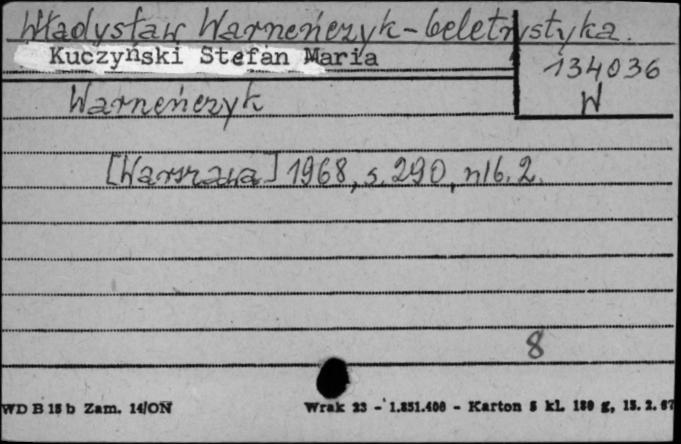 Władysław Warneńczyk - beletrystyka.
Kuczyński Stefan Maria
134036
W
Warneńczyk
[Warszawa] 1968, s. 290, nlb. 2.
8
WD B 15 b Zam. 14/ON
Wrak 23 - 1.851.400 - Karton 5 kl. 180 g, 15. 2. 67